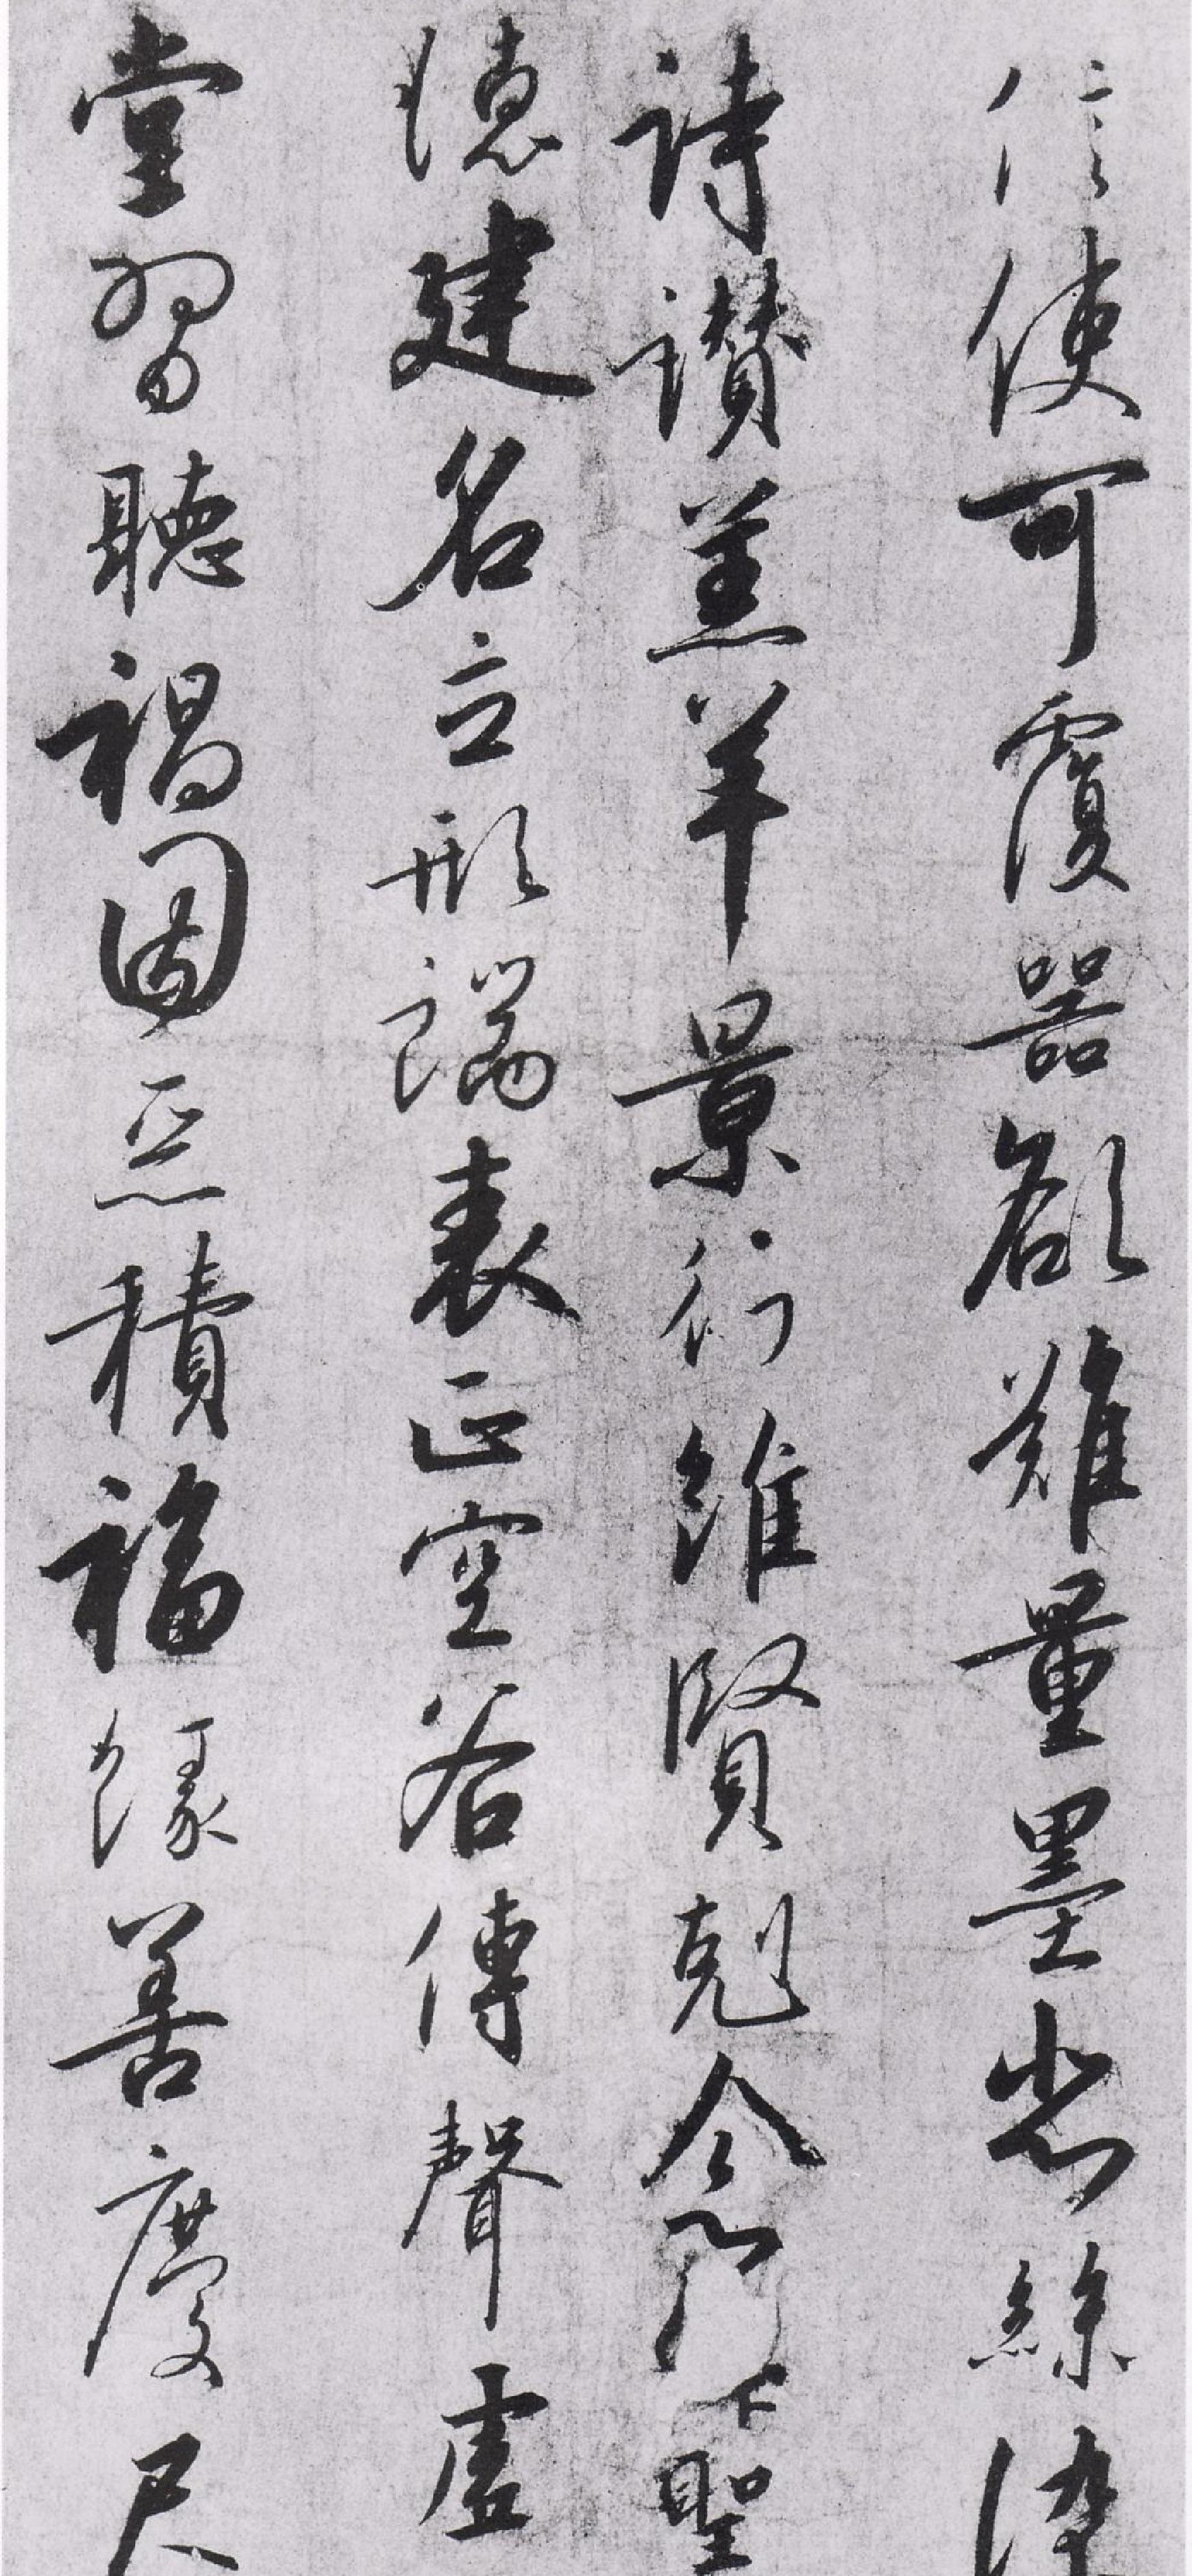 信使可覆器欲難量墨悲絲染
詩讚羔羊景行維賢剋念聖
德建名立形端表正空谷傳聲虛
堂習聽禍因惡積福緣善慶尺